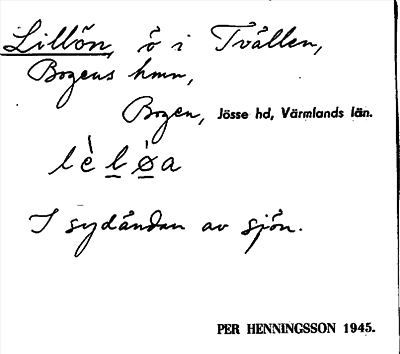 Lillön, ö i Tvällen,
Bogens hmn,
Bogen, Jösse hd, Värmlands län.
lὲlø̀a
I sydändan av sjön.
PER HENNINGSSON 1945.